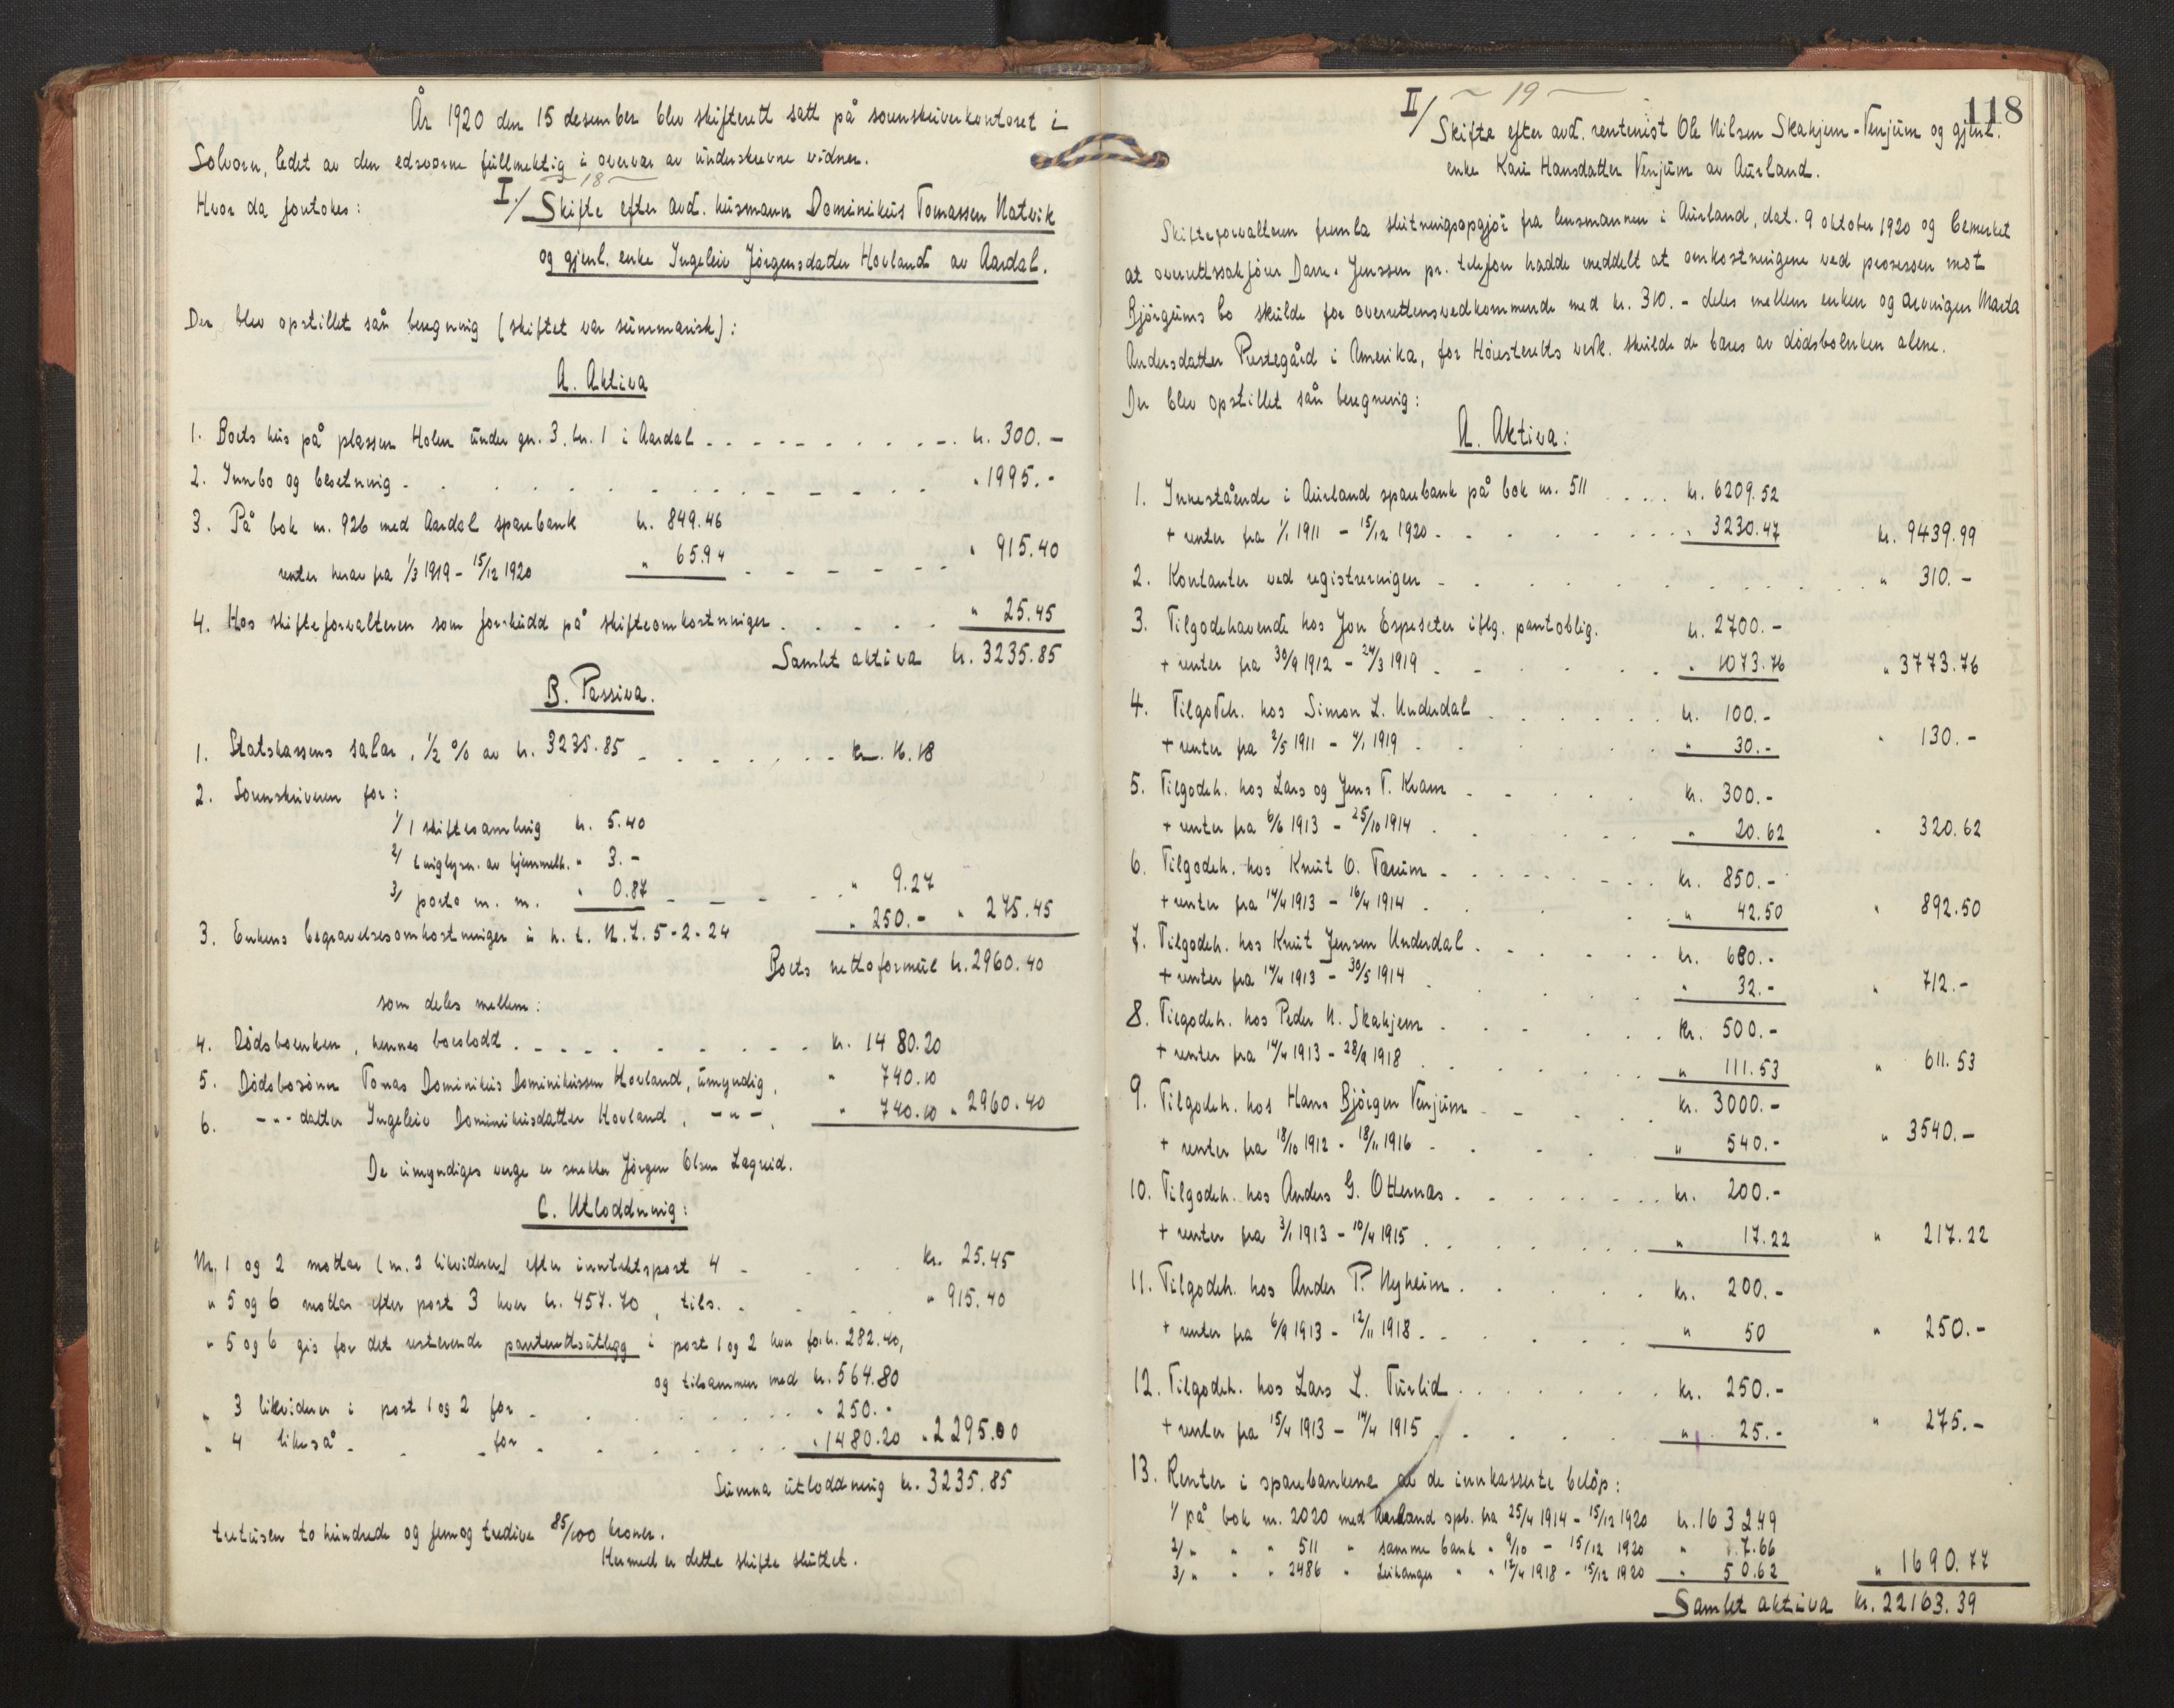 År 1920 den 15 desember blev skifterett satt på sorenskriverkontoret i
Solvorn, ledet av den edsvorne fullmektig i overvær av underskrevne vidner.
Hvor da foretokes:
- 18 -
I./ Skifte efter avd. husmann Dominikus Tomassen Natvik
og gjenl. enke Ingeleiv Jörgensdatter Hovland av Aardal.
Der blev opstillet sån beregning (skiftet var summarisk):
A. Aktiva
1. Boets hus på plassen Holen under gn. 3. br. 1 i Aardal - - - kr. 300.-
2. Innbo og besetning - - - " 1995.-
3. På bok nr. 926 med Aardal sparebank kr. 849.46
renter herav fra 1/3 1919 - 15/12 1920 " 65.94 - - - " 915.40
4. Hos skifteforvalteren som forskudd på skifteomkostninger - - - " 25.45
Samlet aktiva kr. 3235.85
B. Passiva.
1. Statskassens salær, 1/2 % av kr. 3235.85 - - - kr. 16.18
2. Sorenskriveren for:
1/ 1 skiftesamling kr. 5.40
2/ tinglysn. av hjemmelh. " 3.-
3/ porto m. m. " 0.87 - - - " 9.27
3. Enkens begravelsesomkostninger i h. t. N. L. 5-2-24 " 250.- " 275.45
Boets nettoformue kr. 2960.40
som deles mellem:
4. Dödsboenken, hennes boeslodd - - - kr. 1480.20
5. Dödsbosönn Tomas Dominikus Dominikussen Hovland, umyndig, " 740.10
6. -"- datter Ingeleiv Dominikusdatter Hovland, -"-, " 740.10 " 2960.40
De umyndiges verge er snekker Jörgen Olsen Lægreid.
C. Utloddning:
Nr. 1 og 2 mottar (nr. 2 likviderer) efter inntektspost 4 - - - kr. 25.45
" 5 og 6 mottar efter post 3 hver kr. 457.70, tils. - - - " 915.40
" 5 og 6 gis for det resterende panterettsutlegg i post 1 og 2 hver for kr. 282.40,
og tilsammen med kr. 564.80
" 3 likviderer i post 1 og 2 for - - - " 250.-
" 4 likeså - - - for - - - " 1480.20 " 2295.00
Summa utloddning kr. 3235.85
tretusen to hundrede og femogtredive 85/100 kroner.
Hermed er dette skifte sluttet.
118
- 19 -
II/ Skifte efter avd. rentenist Ole Nilsen Skahjem-Venjum og gjenl.
enke Kari Hansdatter Venjum av Aurland.
Skifteforvalteren fremla slutningsopgjör fra lensmannen i Aurland, dat. 9 oktober 1920 og bemerket
at overrettssakförer Dan. Jenssen pr. telefon hadde meddelt at omkostningene ved prosessen mot
Bjørgums bo skulde for overrettens vedkommende med kr. 310.- deles mellem enken og arvingen Marta
Andersdatter Prestegård i Amerika, for Höiesteretts vedk. skulde de bæres av dödsboenken alene.
Der blev opstillet sån beregning:
A. Aktiva:
1. Innestående i Aurland sparebank på bok nr. 511 . . . . kr. 6209.52
+ renter fra 1/1 1911 - 15/12 1920 - - - " 3230.47 kr. 9439.99
2. Kontanter ved registreringen - - - " 310.-
3. Tilgodehavende hos Jon Espeseter iflg. pantoblig. kr. 2700.-
+ renter fra 30/9 1912 - 24/3 1919 - - - " 1073.76 " 3773.76
4. Tilgodeh. hos Simon L. Underdal . . . kr. 100.-
+ renter fra 2/5 1911 - 4/1 1919 . . . " 30.- " 130.-
5. Tilgodeh. hos Lars og Jens T. Kvam - - - kr. 300.-
+ renter fra 6/6 1913 - 25/10 1914 . . . " 20.62 " 320.62
6. Tilgodeh. hos Knut O. Tærum - - - kr. 850.-
+ renter fra 14/4 1913 - 16/4 1914 . . . " 42.50 " 892.50
7. Tilgodeh. hos Knut Jensen Underdal - - - kr. 680.-
+ renter fra 14/4 1913 - 30/5 1914 . . . " 32.- " 712.-
8. Tilgodeh. hos Peder N. Skahjem - - - kr. 500.-
+ renter fra 14/4 1913 - 28/9 1918 . . . " 111.53 " 611.53
9. Tilgodeh. hos Hans Björgen Venjum - - - kr. 3000.-
+ renter fra 18/10 1912 - 18/11 1916 - - - " 540.- " 3540.-
10. Tilgodeh. hos Anders G. Otternæs - - - kr. 200.-
+ renter fra 3/1 1913 - 10/4 1915 . . . " 17.22 " 217.22
11. Tilgodeh. hos Anders P. Nyheim . . . kr. 200.-
+ renter fra 6/9 1913 - 12/11 1918 - - - " 50 " 250.-
12. Tilgodeh. hos Lars L. Turlid . . . kr. 250.-
+ renter fra 15/4 1913 - 14/4 1915 . . . " 25.- " 275.-
13. Renter i sparebankene av de innkasserte belöp:
1/ på bok nr. 2020 med Aurland spb. fra 25/4 1914 - 15/12 1920 kr. 1632.49
2/ " " " 511 " samme bank " 9/10 - 15/12 1920 " 7.66
3/ " " " 2486 " Leikanger " " 17/4 1918 - 15/12 1920 " 50.62 " 1690.77
Samlet aktiva kr. 22163.39